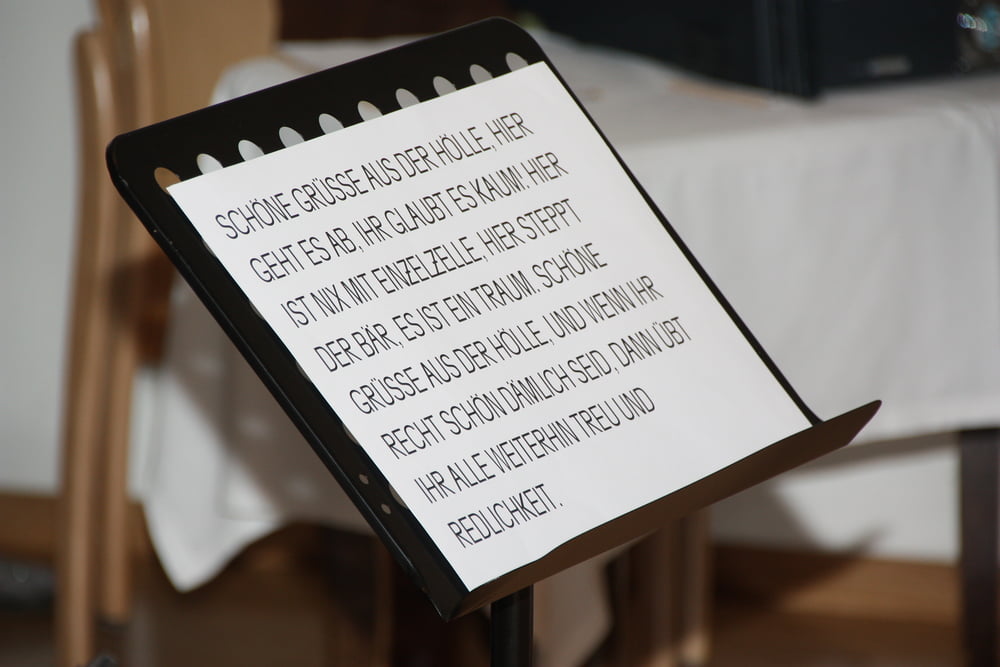 SCHÖNE GRÜSSE AUS DER HÖLLE, HIER
GEHT ES AB, IHR GLAUBT ES KAUM! HIER
IST NIX MIT EINZELZELLE, HIER STEPPT
DER BÄR, ES IST EIN TRAUM. SCHÖNE
GRÜSSE AUS DER HÖLLE, UND WENN IHR
RECHT SCHÖN DÄMLICH SEID, DANN ÜBT
IHR ALLE WEITERHIN TREU UND
REDLICHKEIT.